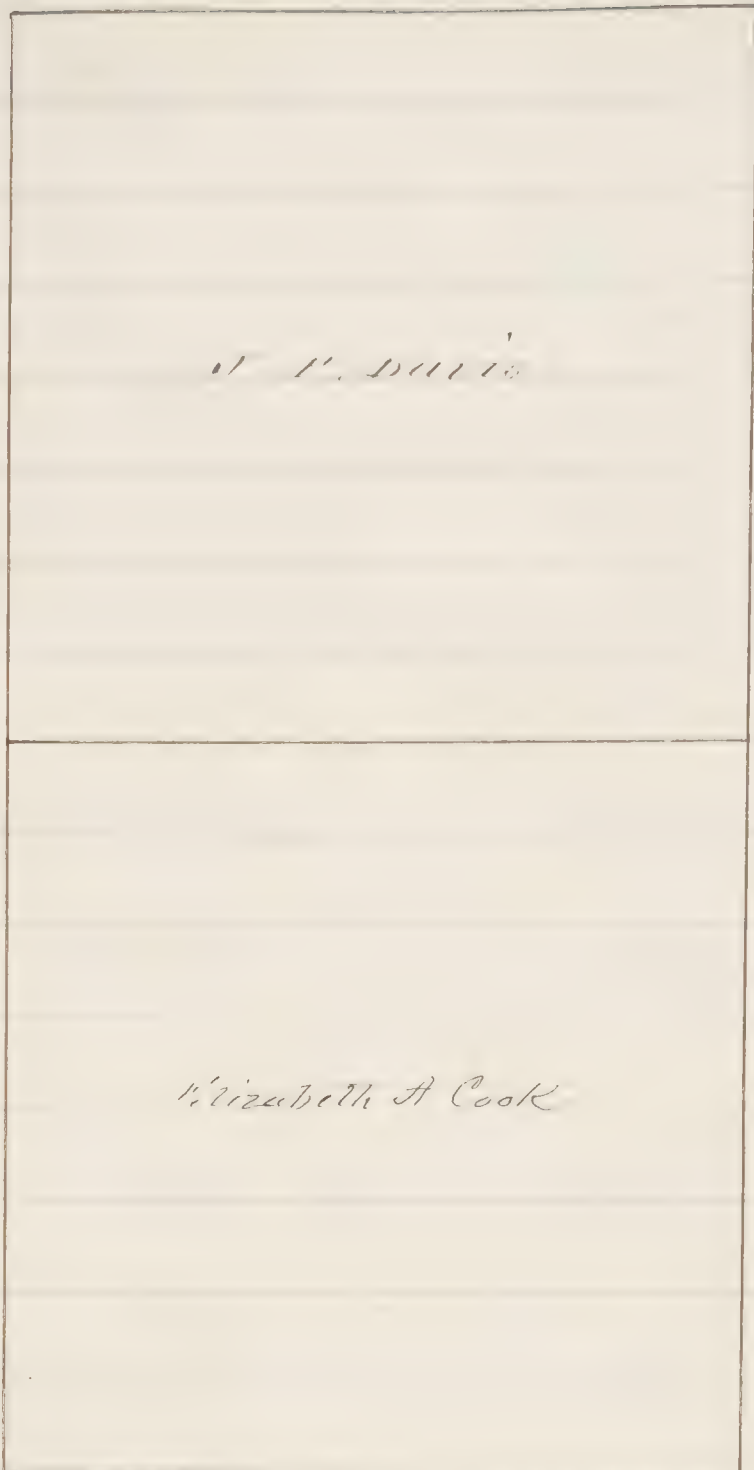 Davis
Elizabeth A Cook